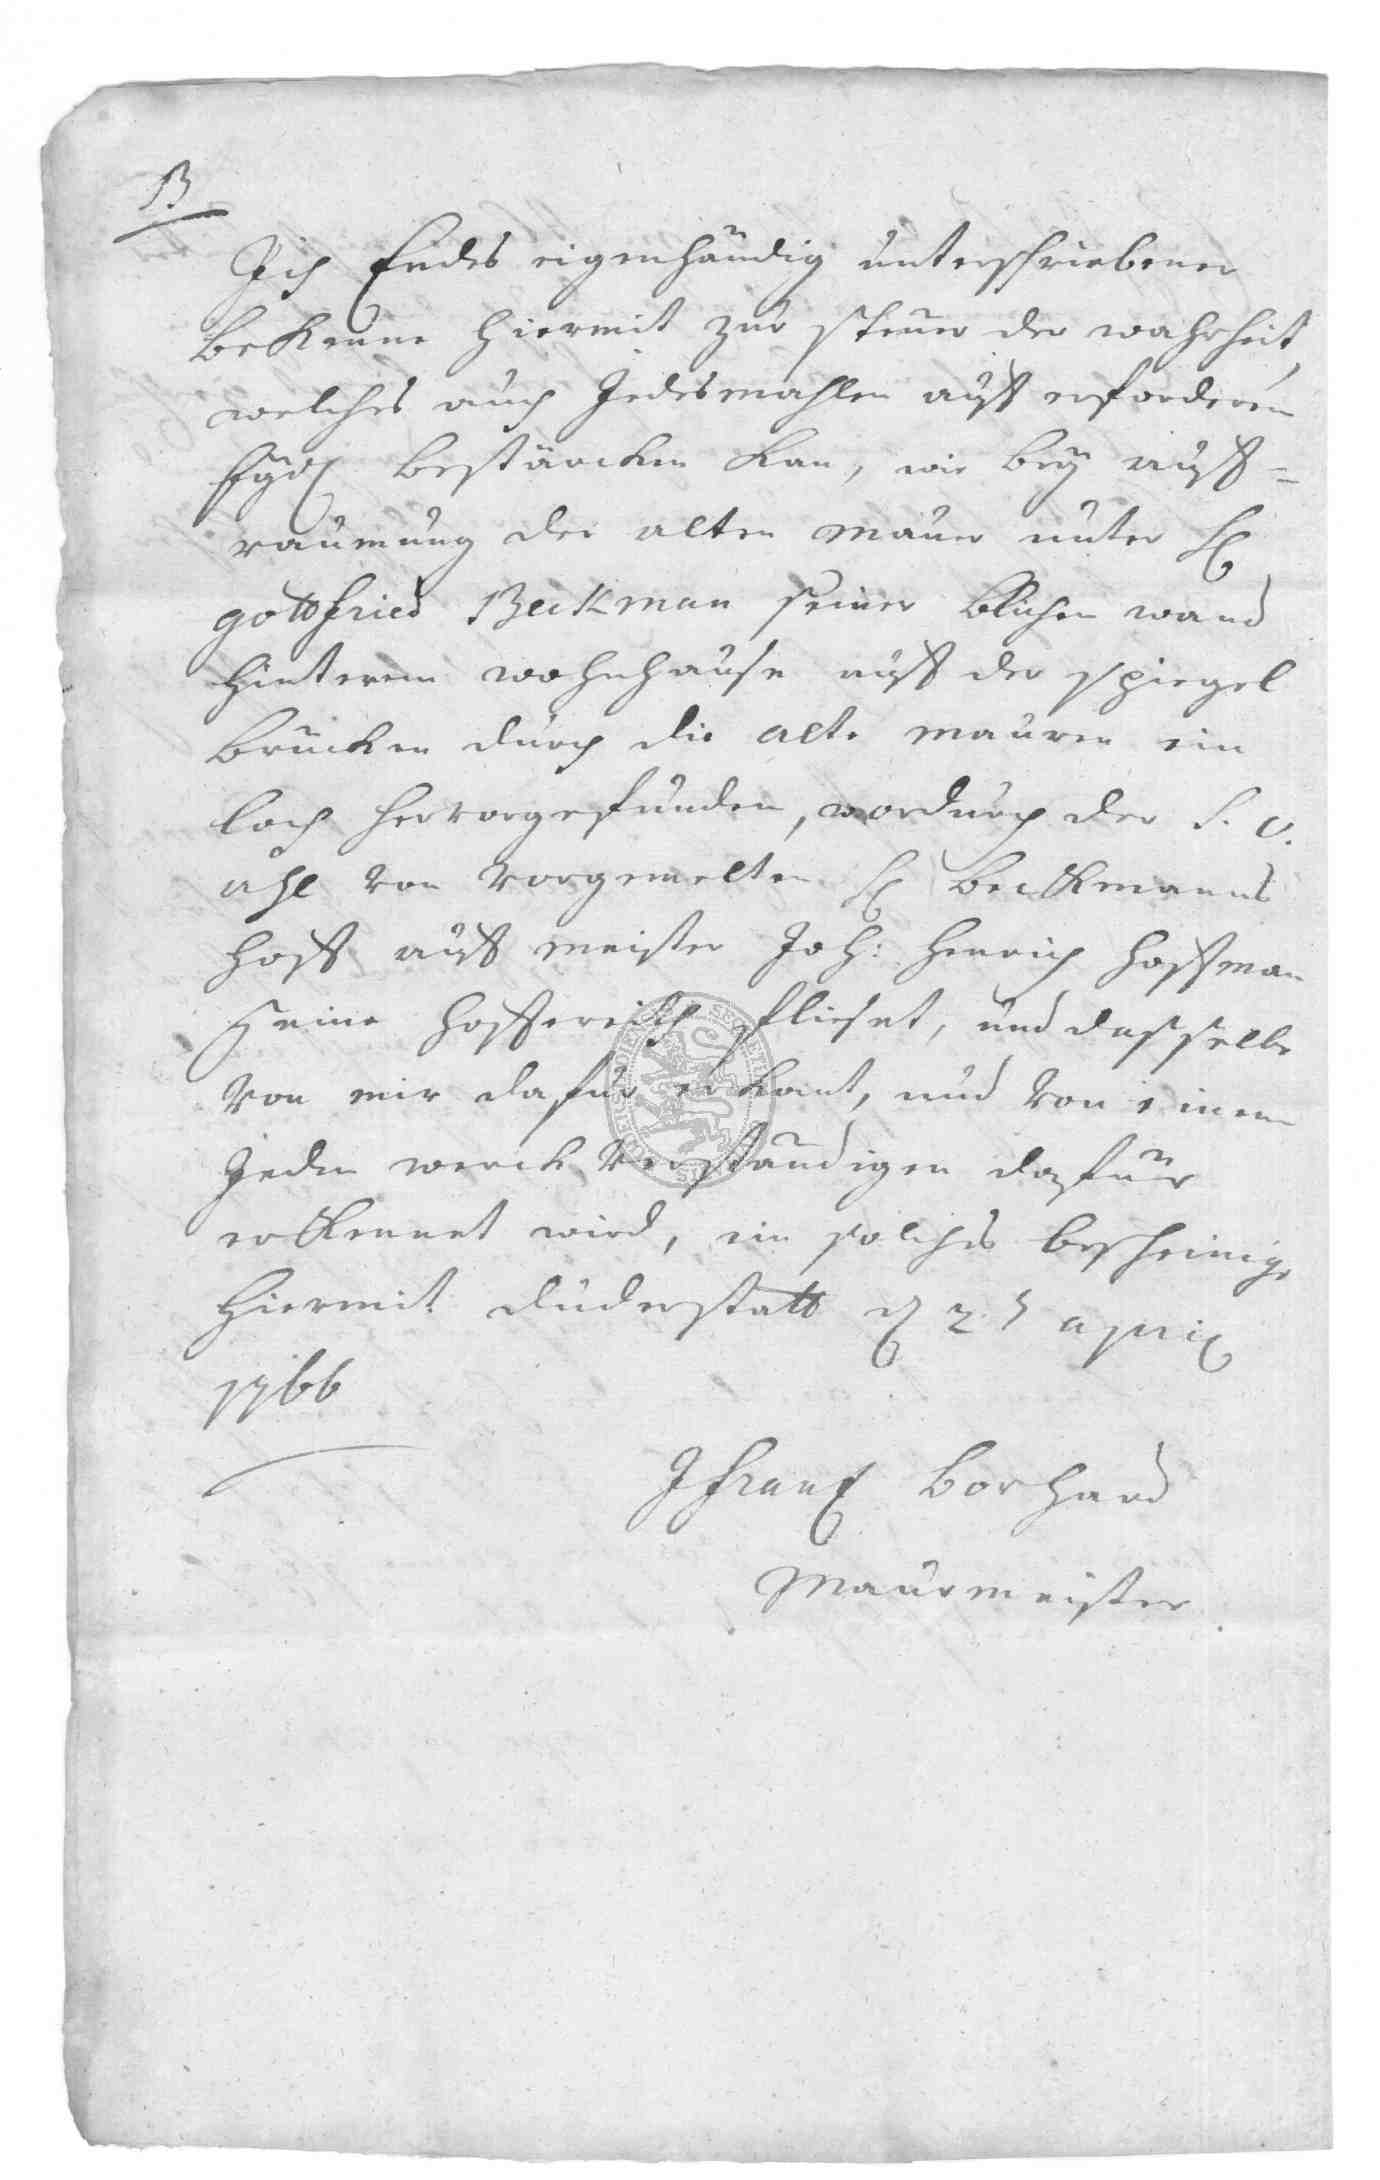 B
Ich Endes eigenhändig unterschriebener
bekenne hiermit zur steuer der wahrheit,
welches auch Jedesmahlen auff erforderen
Eydl bestärcken kan, wie bey auff=
raumung der alten mauer unter H
gottfried Beckman seiner wand
hinterem wohnhause auff der spiegel
brücken durch die alte mauren ein
loch hervorgefunden, wordurch der S. v.
ahl von vorgemelten H Beckmanns
hoff auff meister Joh: Henrich Hoffman
seine fliesset, und dasselbe
von mir dafür erkant, und von einem
Jeden werck verständigen dafür
erkennet wird, ein solches bescheinige
hiermit duderstatt d 25 april
1766
J Frantz Borchard
Maurmeister